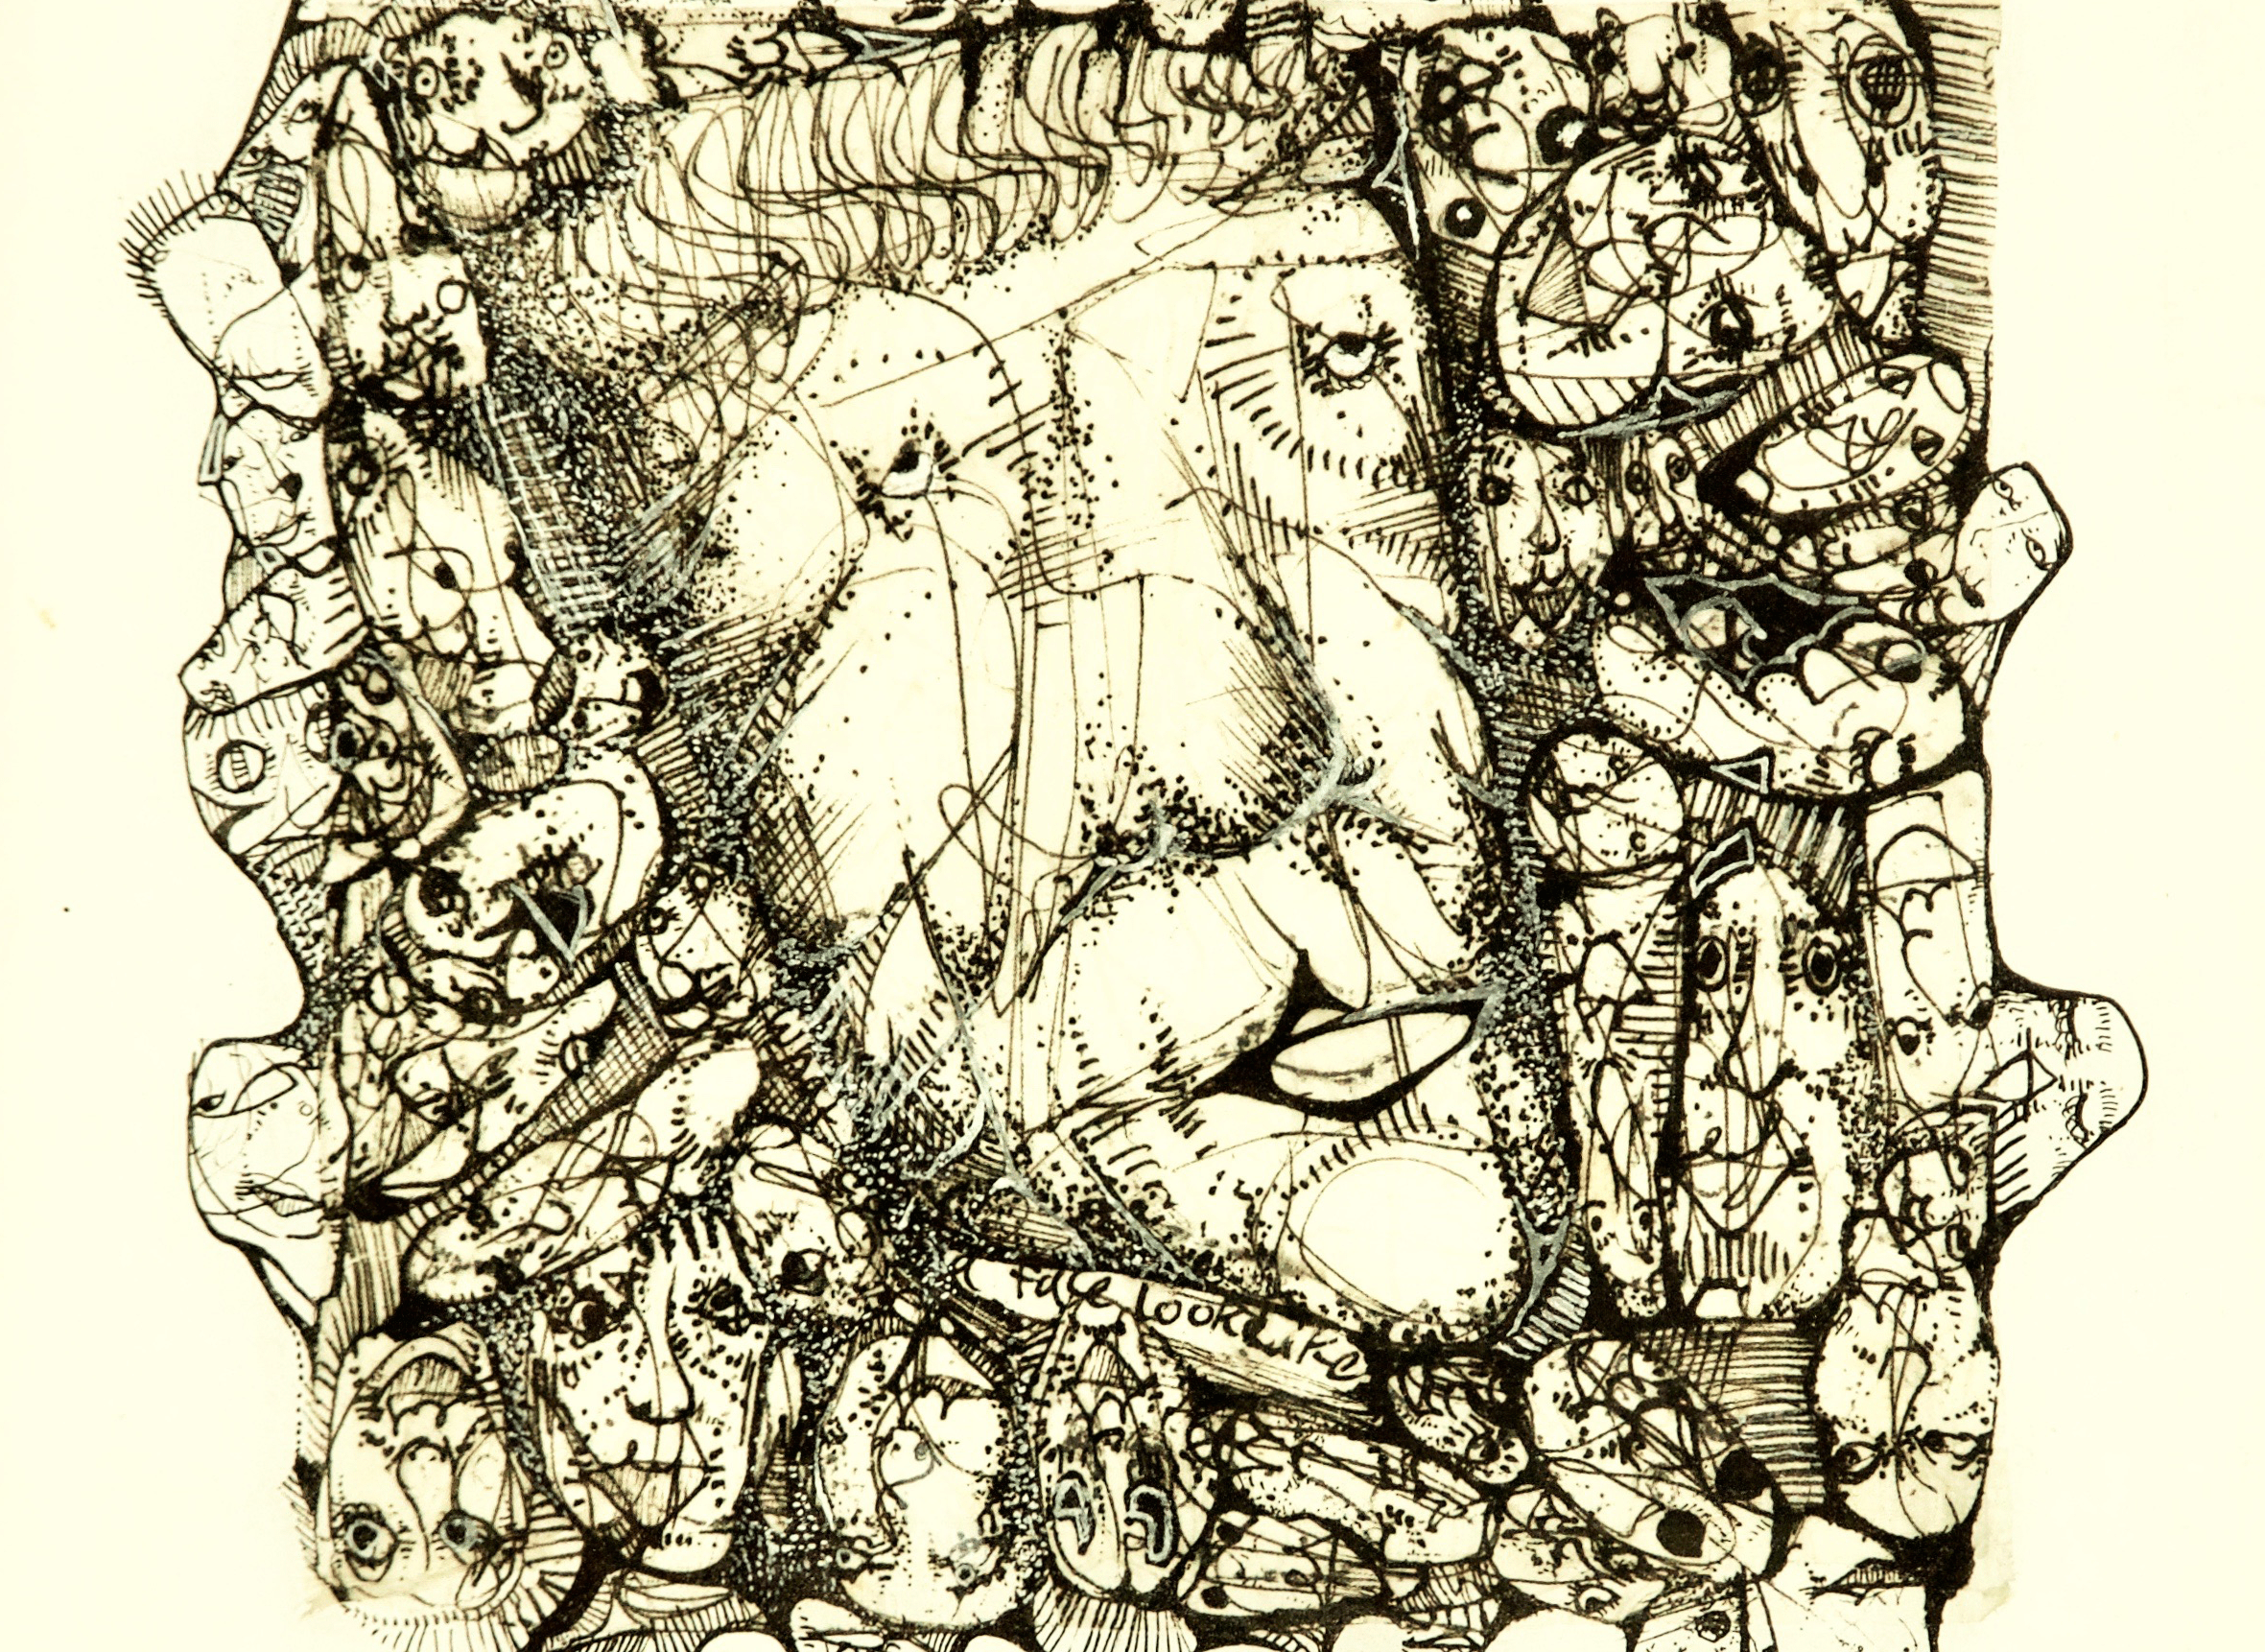 a face look like